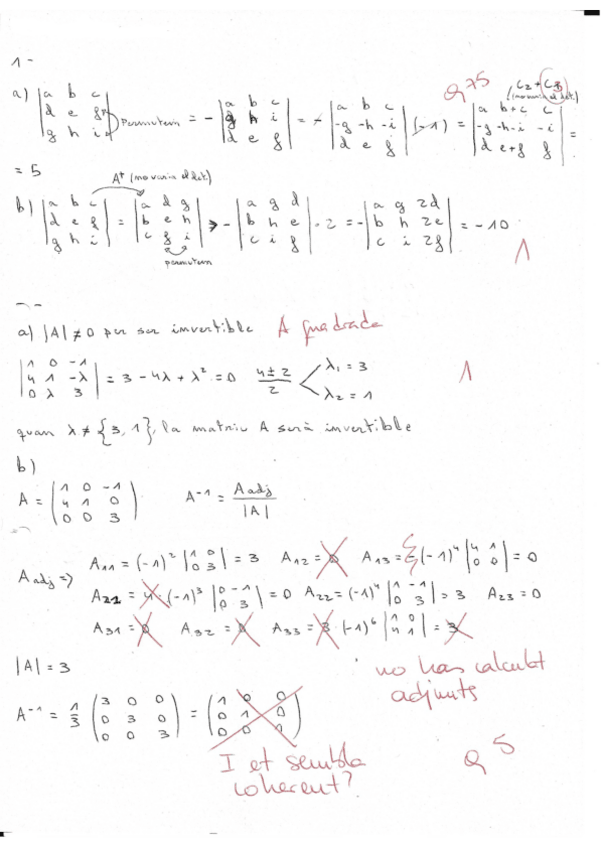 1-
0'75
C2 + C3
(no varia el det.)
a) |a b c; d e f; g h i| Permutem = - |a b c; g h i; d e f| = - |a b c; -g -h -i; d e f| (-1) = |a b+c c; -g -h-i -i; d e+f f| =
= 5
A^t (no varia el det.)
b) |a b c; d e f; g h i| = |a d g; b e h; c f i| → - |a g d; b h e; c i f| · 2 = - |a g 2d; b h 2e; c i 2f| = -10
permutem
1
a) |A| ≠ 0 per ser invertible A quadrada
|1 0 -1; 4 1 -λ; 0 λ 3| = 3 - 4λ + λ² = 0 (4 ± 2)/2 λ1 = 3 λ2 = 1
1
quan λ ≠ {3, 1}, la matriu A serà invertible
b)
A = (1 0 -1; 4 1 0; 0 0 3) A^-1 = A adj / |A|
A adj => A11 = (-1)² |1 0; 0 3| = 3 A12 = 0 A13 = (-1)^4 |4 1; 0 0| = 0
A21 = 4 · (-1)³ |0 -1; 0 3| = 0 A22 = (-1)^4 |1 -1; 0 3| = 3 A23 = 0
A31 = 0 A32 = 0 A33 = 3 · (-1)^6 |1 0; 4 1| = 3
|A| = 3
no has calculat
adjunts
A^-1 = 1/3 (3 0 0; 0 3 0; 0 0 3) = (1 0 0; 0 1 0; 0 0 1)
I et sembla
coherent?
0'5